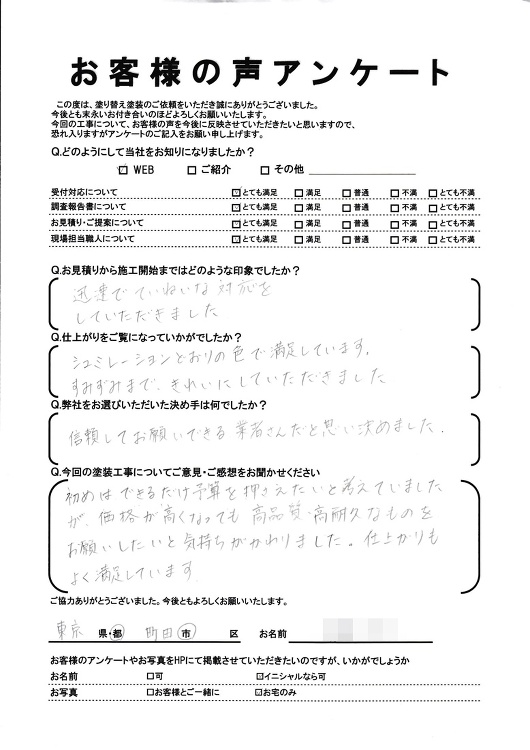 お客様の声アンケート
この度は、塗り替え塗装のご依頼をいただき誠にありがとうございました。
今後とも末永いお付き合いのほどよろしくお願いいたします。
今回の工事について、お客様の声を今後に反映させていただきたいと思いますので、
恐れ入りますがアンケートのご記入をお願い申し上げます。
Q.どのようにして当社をお知りになりましたか?
☑ WEB □ ご紹介 □ その他
受付対応について ☑とても満足 □満足 □普通 □不満 □とても不満
調査報告書について ☑とても満足 □満足 □普通 □不満 □とても不満
お見積り・ご提案について ☑とても満足 □満足 □普通 □不満 □とても不満
現場担当職人について ☑とても満足 □満足 □普通 □不満 □とても不満
Q.お見積りから施工開始まではどのような印象でしたか?
迅速でていねいな対応を
していただきました
Q.仕上がりをご覧になっていかがでしたか?
シュミレーションどおりの色で満足しています。
すみずみまで、きれいにしていただきました
Q.弊社をお選びいただいた決め手は何でしたか?
信頼してお願いできる業者さんだと思い決めました.
Q.今回の塗装工事についてご意見・ご感想をお聞かせください
初めはできるだけ予算を押さえたいと考えていました
が、価格が高くなっても高品質・高耐久なものを
お願いしたいと気持ちがかわりました。仕上がりも
よく満足しています
ご協力ありがとうございました。今後ともよろしくお願いいたします。
東京 県・都 町田 市 区 お名前
お客様のアンケートやお写真をHPにて掲載させていただきたいのですが、いかがでしょうか
お名前 □可 ☑イニシャルなら可
お写真 □お客様とご一緒に ☑お宅のみ